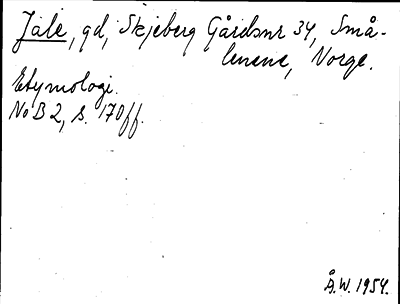 Jale, gd, Skjeberg Gårdsnr 34, Små-
lenene, Norge.
Etymologi.
NoB 2, s. 170ff.
Å.W. 1954.